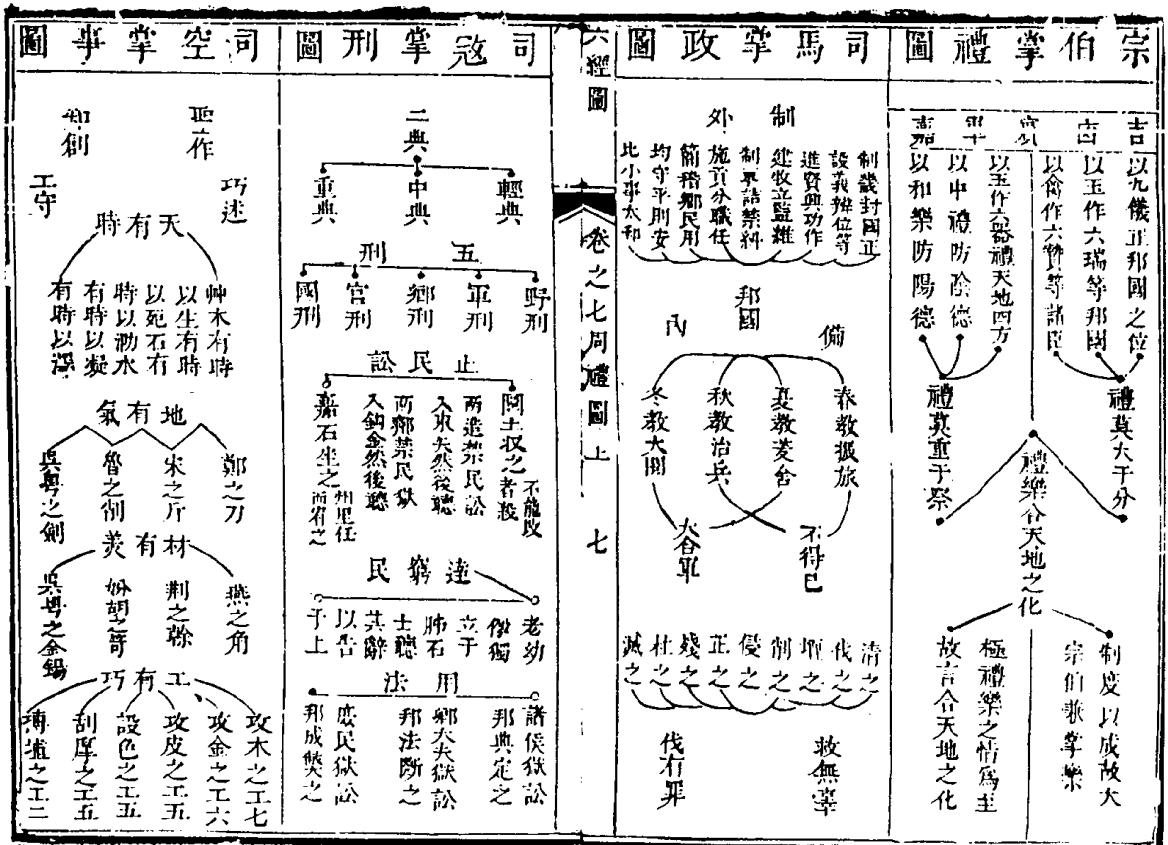 宗伯掌禮圖
吉
嘉
以九儀正邦國之位
以玉作六瑞等邦國
以禽作六贄等諸臣
以玉作六器禮天地四方
以中禮防陰德
以和樂防陽德
禮莫大于分
禮莫重于祭
禮樂合天地之化
制度以成故大
宗伯兼掌樂
極禮樂之情為主
故言合天地之化
司馬掌政圖
制
外
制畿封國正
設義辨位等
進賢興功作
建牧立監維
制軍詰禁糾
施貢分職任
簡稽鄉民用
均守平則安
比小事大和
邦國
備
內
春教振旅
夏教茇舍
秋教治兵
冬教大閱
不得已
大合軍
伐之
壇之
削之
侵之
正之
殘之
杜之
滅之
救無辜
伐有罪
六經圖
卷之七周禮圖上
七
司寇掌刑圖
輕典
中典
重典
五刑
野刑
軍刑
鄉刑
官刑
國刑
止民訟
兩造禁民訟
入束矢然後聽
兩鄉禁民獄
入鈞金然後聽
嘉石坐之
州里任
而宥之
達窮民
老幼
惸獨
立于
肺石
士聽
其辭
以告
于上
用法
諸侯獄訟
邦典定之
卿大夫獄訟
邦法斷之
庶民獄訟
邦成獘之
司空掌事圖
聖作
知創
巧述
工守
天有時
艸木有時
以生有時
以死石有
時以泐水
有時以凝
有時以澤
地有氣
鄭之刀
宋之斤
魯之削
吳粵之劍
材有美
燕之角
荊之幹
妢胡之笴
吳粵之金錫
工有巧
攻木之工七
攻金之工六
攻皮之工五
設色之工五
刮摩之工五
摶埴之工二